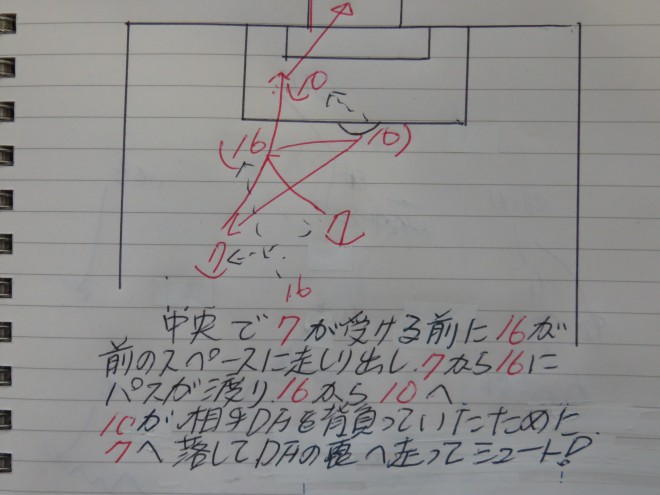 10
16
10
7
7
16
中央で7が受ける前に16が
前のスペースに走しり出し、7から16に
パスが渡り、16から10へ
10が相手DFを背負っていたために
7へ落してDFの裏へ走ってシュート!